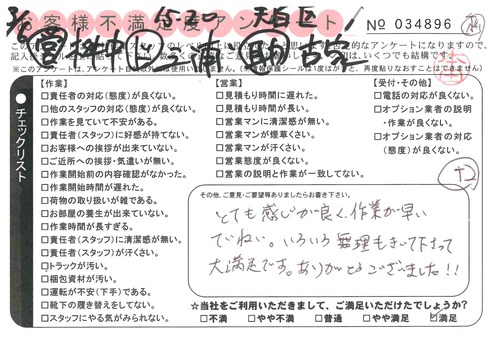 3/6 15-20 天白区
お客様不満足度アンケート
No 034896
【作業】
□責任者の対応(態度)が良くない。
□他のスタッフの対応(態度)が良くない。
□作業を見ていて不安がある。
□責任者(スタッフ)に好感が持てない。
□お客様への挨拶が出来ていない。
□ご近所への挨拶・気遣いが無い。
□作業開始前の内容確認がなかった。
□作業開始時間が遅れた。
□荷物の取り扱いが雑である。
□お部屋の養生が出来ていない。
□作業時間が長すぎる。
□責任者(スタッフ)に清潔感が無い。
□責任者(スタッフ)が汗くさい。
□トラックが汚い。
□梱包資材が汚い。
□運転が不安(下手)である。
□靴下の履き替えをしてない。
□スタッフにやる気がみられない。
【営業】
□見積もり時間に遅れた。
□見積もり時間が長い。
□営業マンに清潔感が無い。
□営業マンが煙草くさい。
□営業マンが汗くさい。
□営業態度が良くない。
□営業の説明と作業が一致してない。
【受付・その他】
□電話の対応が良くない。
□オプション業者の説明
・作業が良くない。
□オプション業者の対応
(態度)が良くない。
チェックリスト
+2
その他、ご意見・ご要望等ありましたらお書き下さい。
とても感じが良く、作業が早い
ていねい。いろいろ無理もきいて下さって
大満足です。ありがとうございました!!
☆当社をご利用いただきまして、ご満足いただけたでしょうか?
□不満 □やや不満 □普通 □やや満足 ☑満足